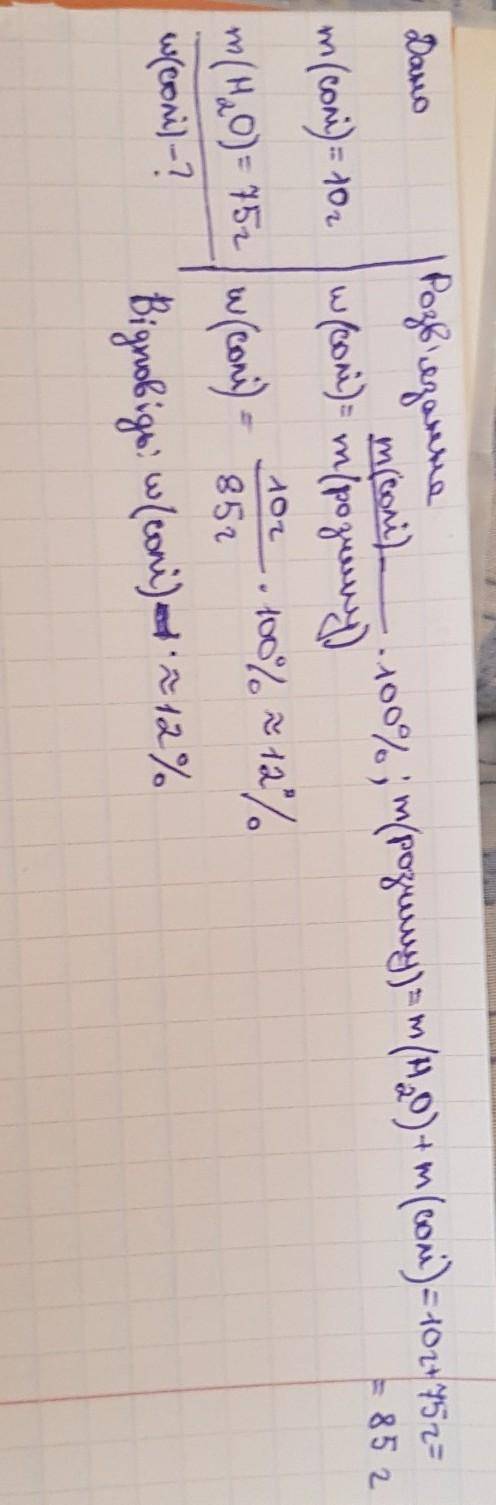 Дано
m(солі) = 10г
m(H₂O) = 75г
w(солі) – ?
Розв'язання
w(солі) = m(солі) / m(розчину) · 100%; m(розчину) = m(H₂O) + m(солі) = 10г + 75г =
= 85 г
w(солі) = 10г / 85г · 100% ≈ 12%
Відповідь: w(солі) ≈ 12%